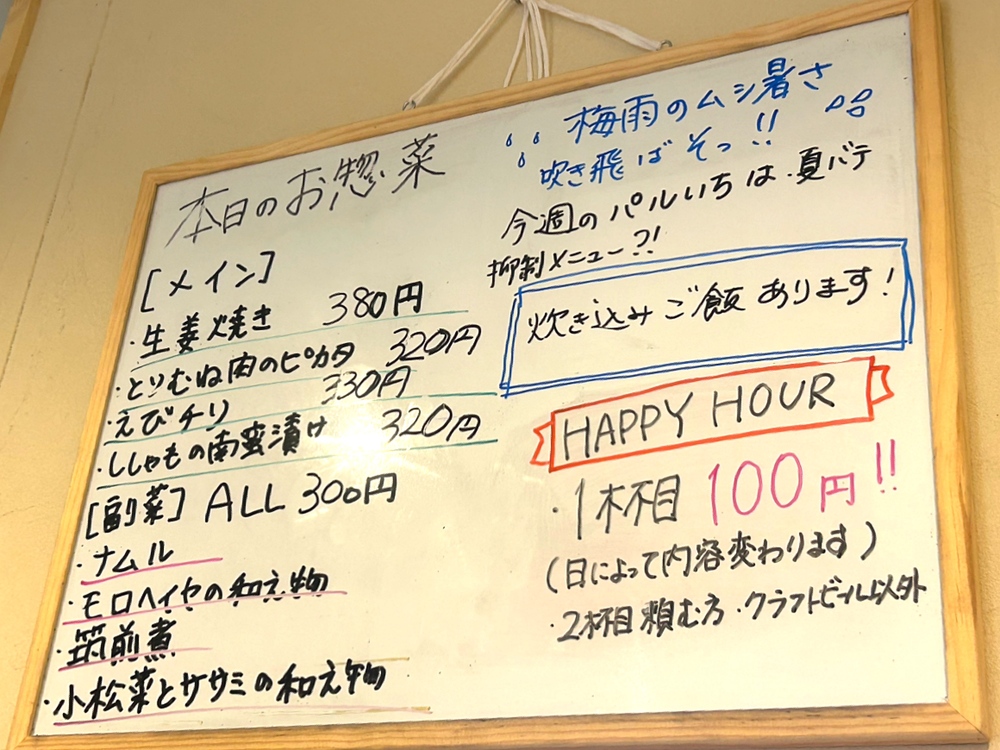 本日のお惣菜
[メイン]
・生姜焼き 380円
・とりむね肉のピカタ 320円
・えびチリ 330円
・ししゃもの南蛮漬け 320円
[副菜] ALL 300円
・ナムル
・モロヘイヤの和え物
・筑前煮
・小松菜とササミの和え物
梅雨のムシ暑さ
吹き飛ばそっ!!
今週のパルいちは、夏バテ
抑制メニュー?!
炊き込みご飯あります!
HAPPY HOUR
・1杯目 100円!!
(日によって内容変わります)
・2杯目頼む方・クラフトビール以外